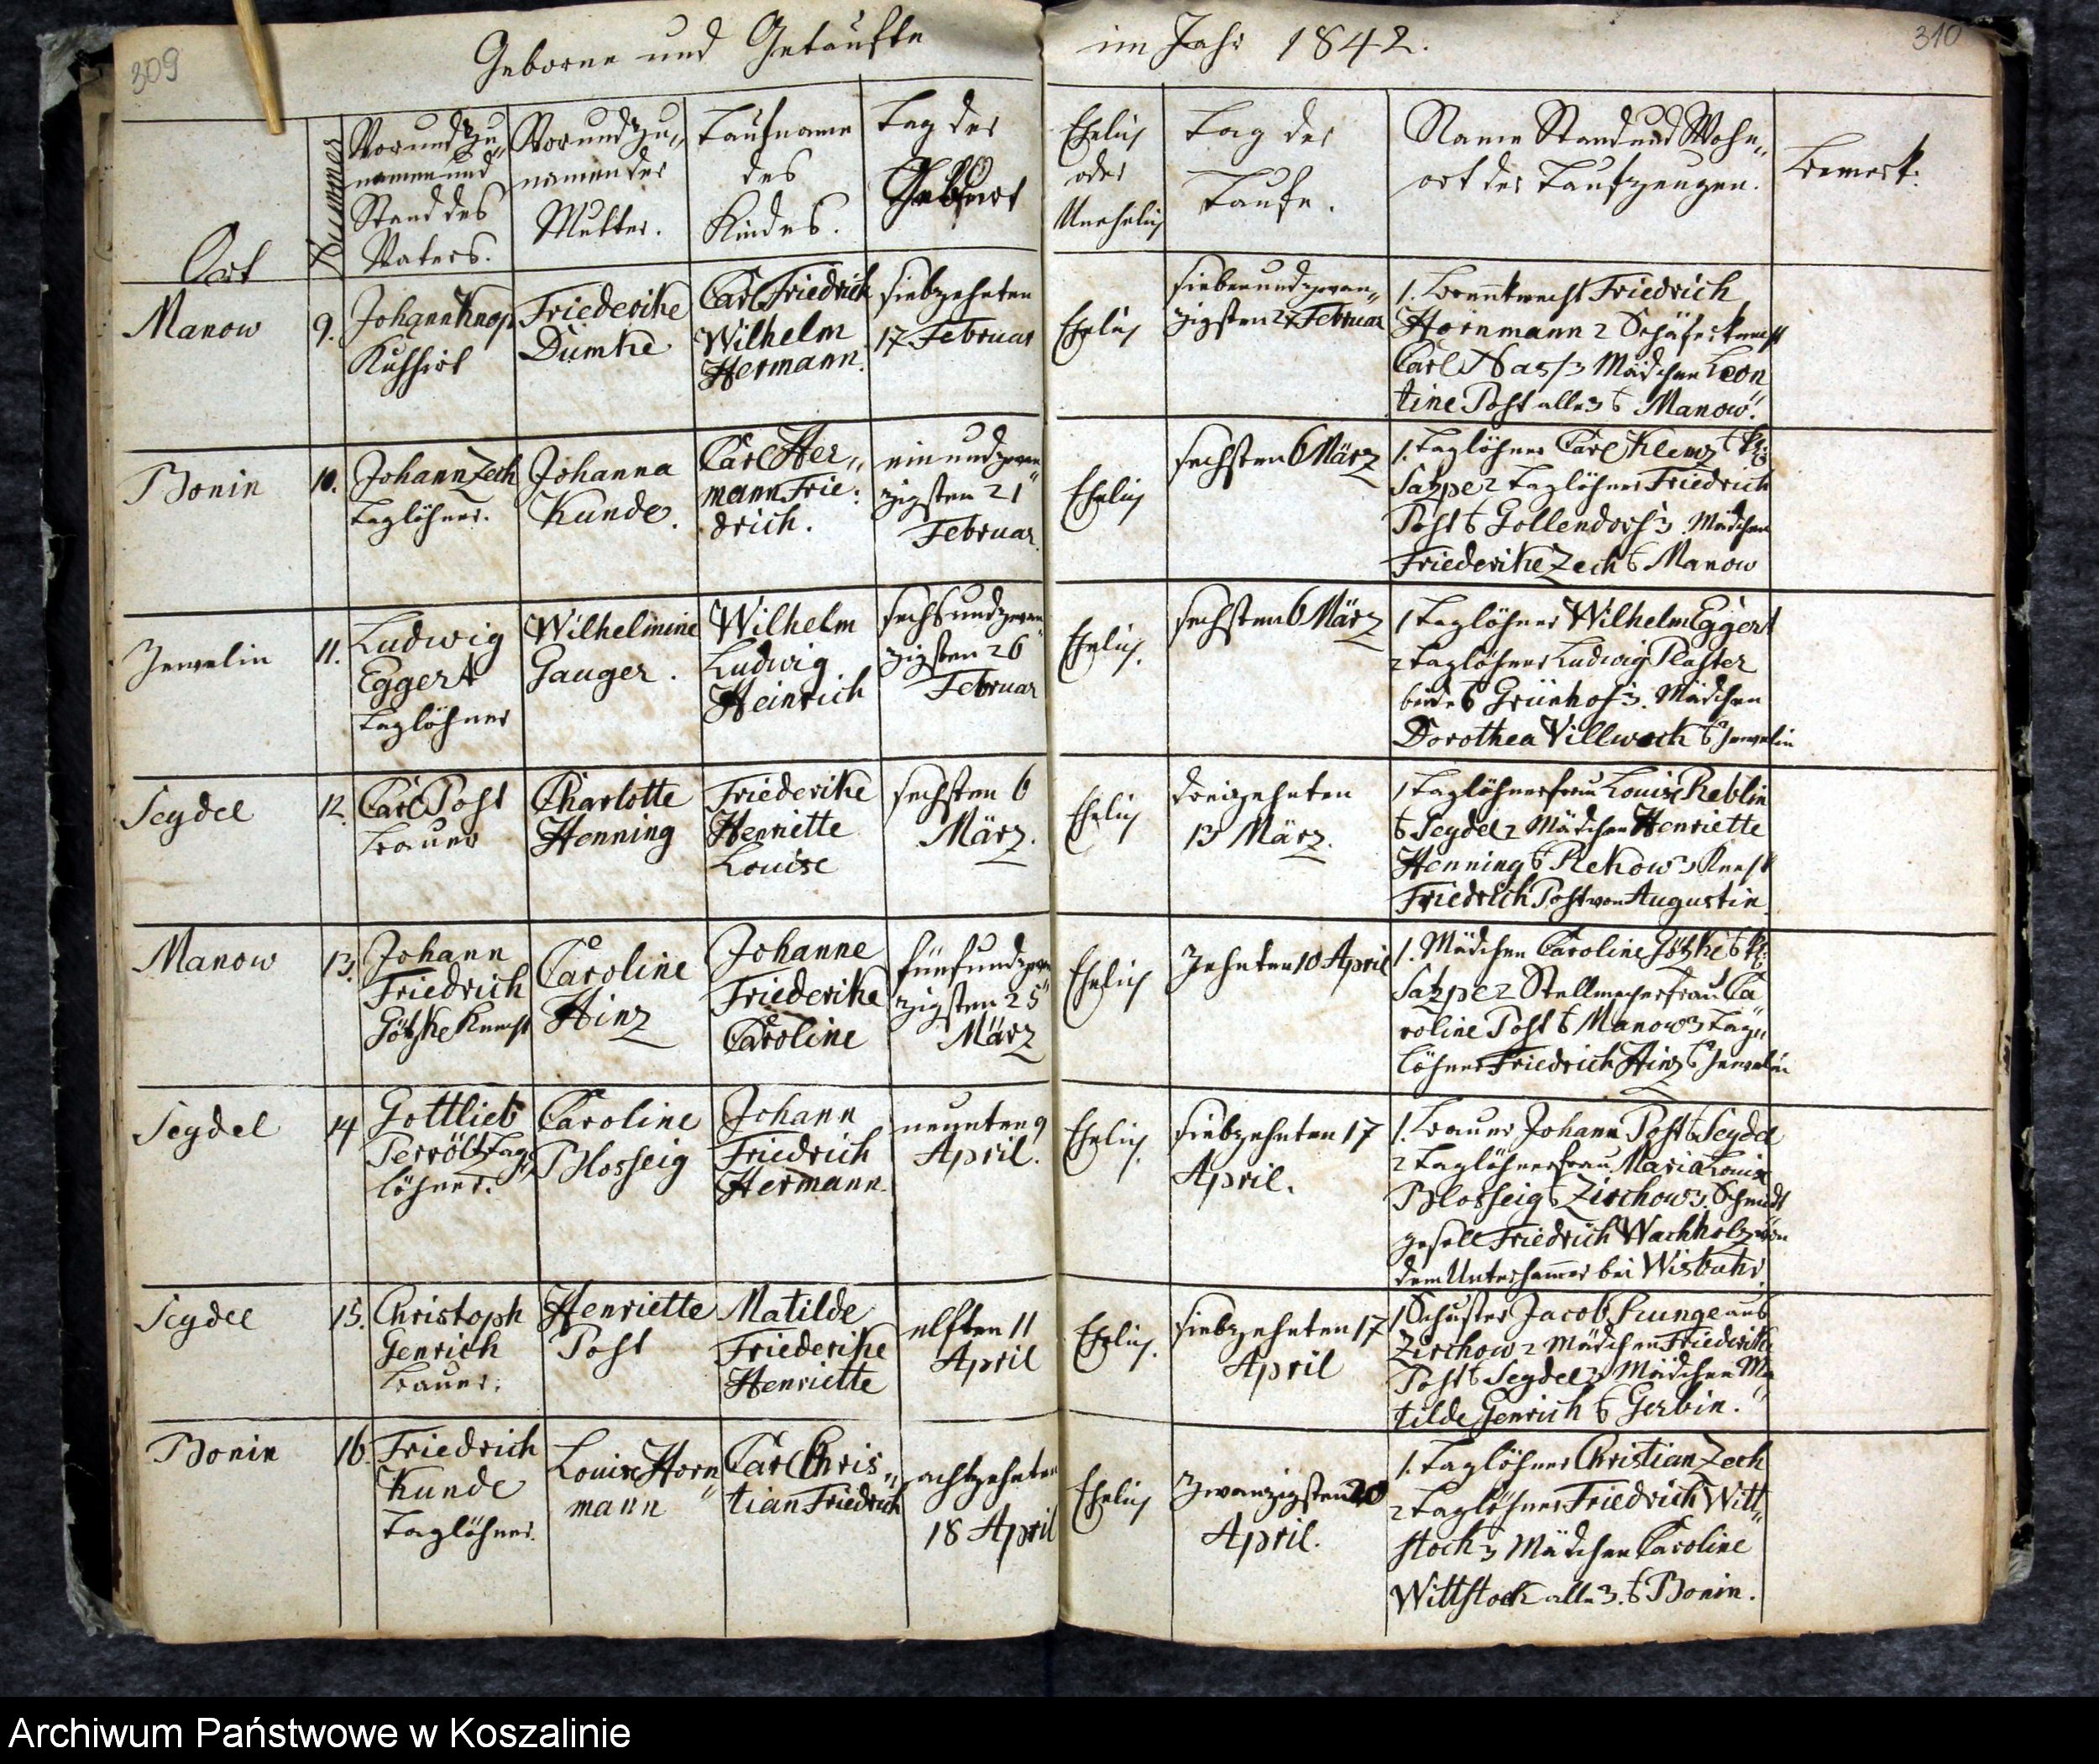 309
Geborne und Getaufte
im Jahr 1842.
310
Ort
Nummer
Vor und Zu„
namen und
Stand des
Vaters.
Vor und Zu„
namen der
Mutter.
Taufname
des
Kindes.
Tag der
Geburt
Ehelich
oder
Unehelich
Tag der
Taufe.
Name Stand und Wohn„
ort der Taufzeugen.
Bemerk:
Manow
9.
Johann Knop
Kuhhirt
Friederike
Dumke
Carl Friedrich
Wilhelm
Hermann.
siebzehnten
17 Februar
Ehelich
siebenundzwan„
zigsten 27 Februar
1. Brennknecht Friedrich
Hornmann 2 Schäferknecht
Carl Nass 3 Mädchen Leon
tine Post alle 3 z Manow.
Bonin
10.
Johann Zech
Taglöhner.
Johanna
Kunde.
Carl Her„
mann Frie:
drich.
einundzwan„
zigsten 21
Februar.
Ehelich
sechsten 6 März
1. Taglöhner Carl Klemz z Kl:
Satspe 2 Taglöhner Friedrich
Post z Gollendorf 3 Mädchen
Friederike Zech z Manow
Jewelin
11.
Ludwig
Eggert
Taglöhner
Wilhelmine
Gauger.
Wilhelm
Ludwig
Heinrich
sechsundzwan„
zigsten 26
Februar
Ehelich.
sechsten 6 März
1 Taglöhner Wilhelm Eggert
2 Taglöhner Ludwig Plaster
beide z Grünhof 3. Mädchen
Dorothea Villwock z Jewelin
Seydel
12.
Carl Post
Bauer
Charlotte
Henning
Friederike
Henriette
Louise
sechsten 6
März.
Ehelich
dreizehnten
13 März.
1 Taglöhnerfrau Louise Reblin
z Seydel 2 Mädchen Henriette
Henning z Rekow 3 Knecht
Friedrich Post von Augustin
Manow
13.
Johann
Friedrich
Götzke Knecht
Caroline
Hinz
Johanne
Friederike
Caroline
fünfundzwan„
zigsten 25
März
Ehelich
Zehnten 10 April
1. Mädchen Caroline Götzke z Kl:
Satspe 2 Stellmacherfrau Ca
roline Post z Manow 3 Tag„
löhner Friedrich Hinz z Jewelin
Seydel
14
Gottlieb
Tag„
löhner.
Caroline
Blosseig
Johann
Friedrich
Hermann.
neunten 9
April.
Ehelich.
siebzehnten 17
April.
1. Bauer Johann Post z Seydel
2 Taglöhnerfrau Maria Louise
Blosseig z Zirchow 3. Schmidt
gesell Friedrich Wachholz von
dem Unterhammer bei Wisbuhr.
Seydel
15.
Christoph
Genrich
Bauer.
Henriette
Post
Matilde
Friederike
Henriette
elften 11
April
Ehelich.
siebzehnten 17
April
1 Schuster Jacob Runge aus
Zirchow 2 Mädchen Friederike
Post z Seydel 3 Mädchen Ma„
tilde Genrich z Gerbin.
Bonin
16.
Friedrich
Kunde
Taglöhner.
Louise Horn„
mann
Carl Chris„
tian Friedrich
achtzehnten
18 April
Ehelich
Zwanzigsten 20
April.
1. Taglöhner Christian Zech
2 Taglöhner Friedrich Witt„
stock 3 Mädchen Caroline
Wittstock alle 3. z Bonin.
Archiwum Państwowe w Koszalinie